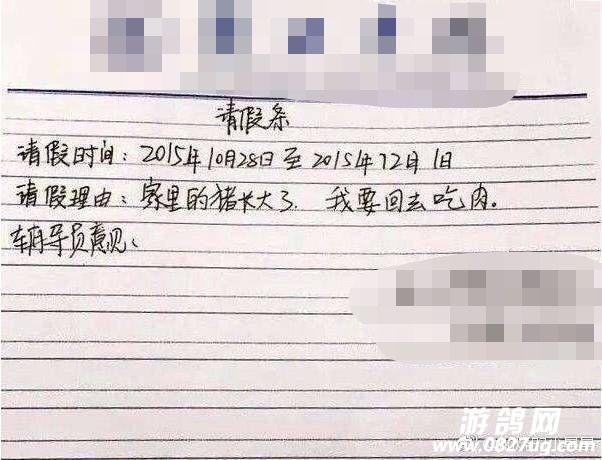 请假条
请假时间：2015年10月28日至2015年12月1日
请假理由：家里的猪长大了，我要回去吃肉。
辅导员意见：
游鸽网
www.0827ug.com